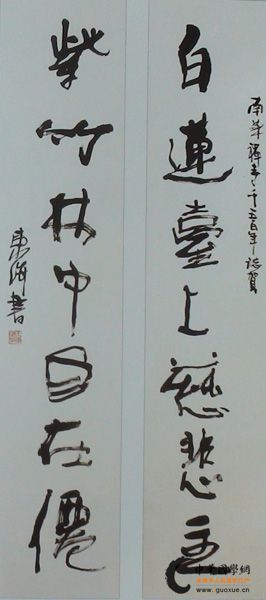 南華禪寺千五百年誌賀
白蓮臺上慈悲主
紫竹林中自在僊
東海書
中華國學網
www.guoxue.cn